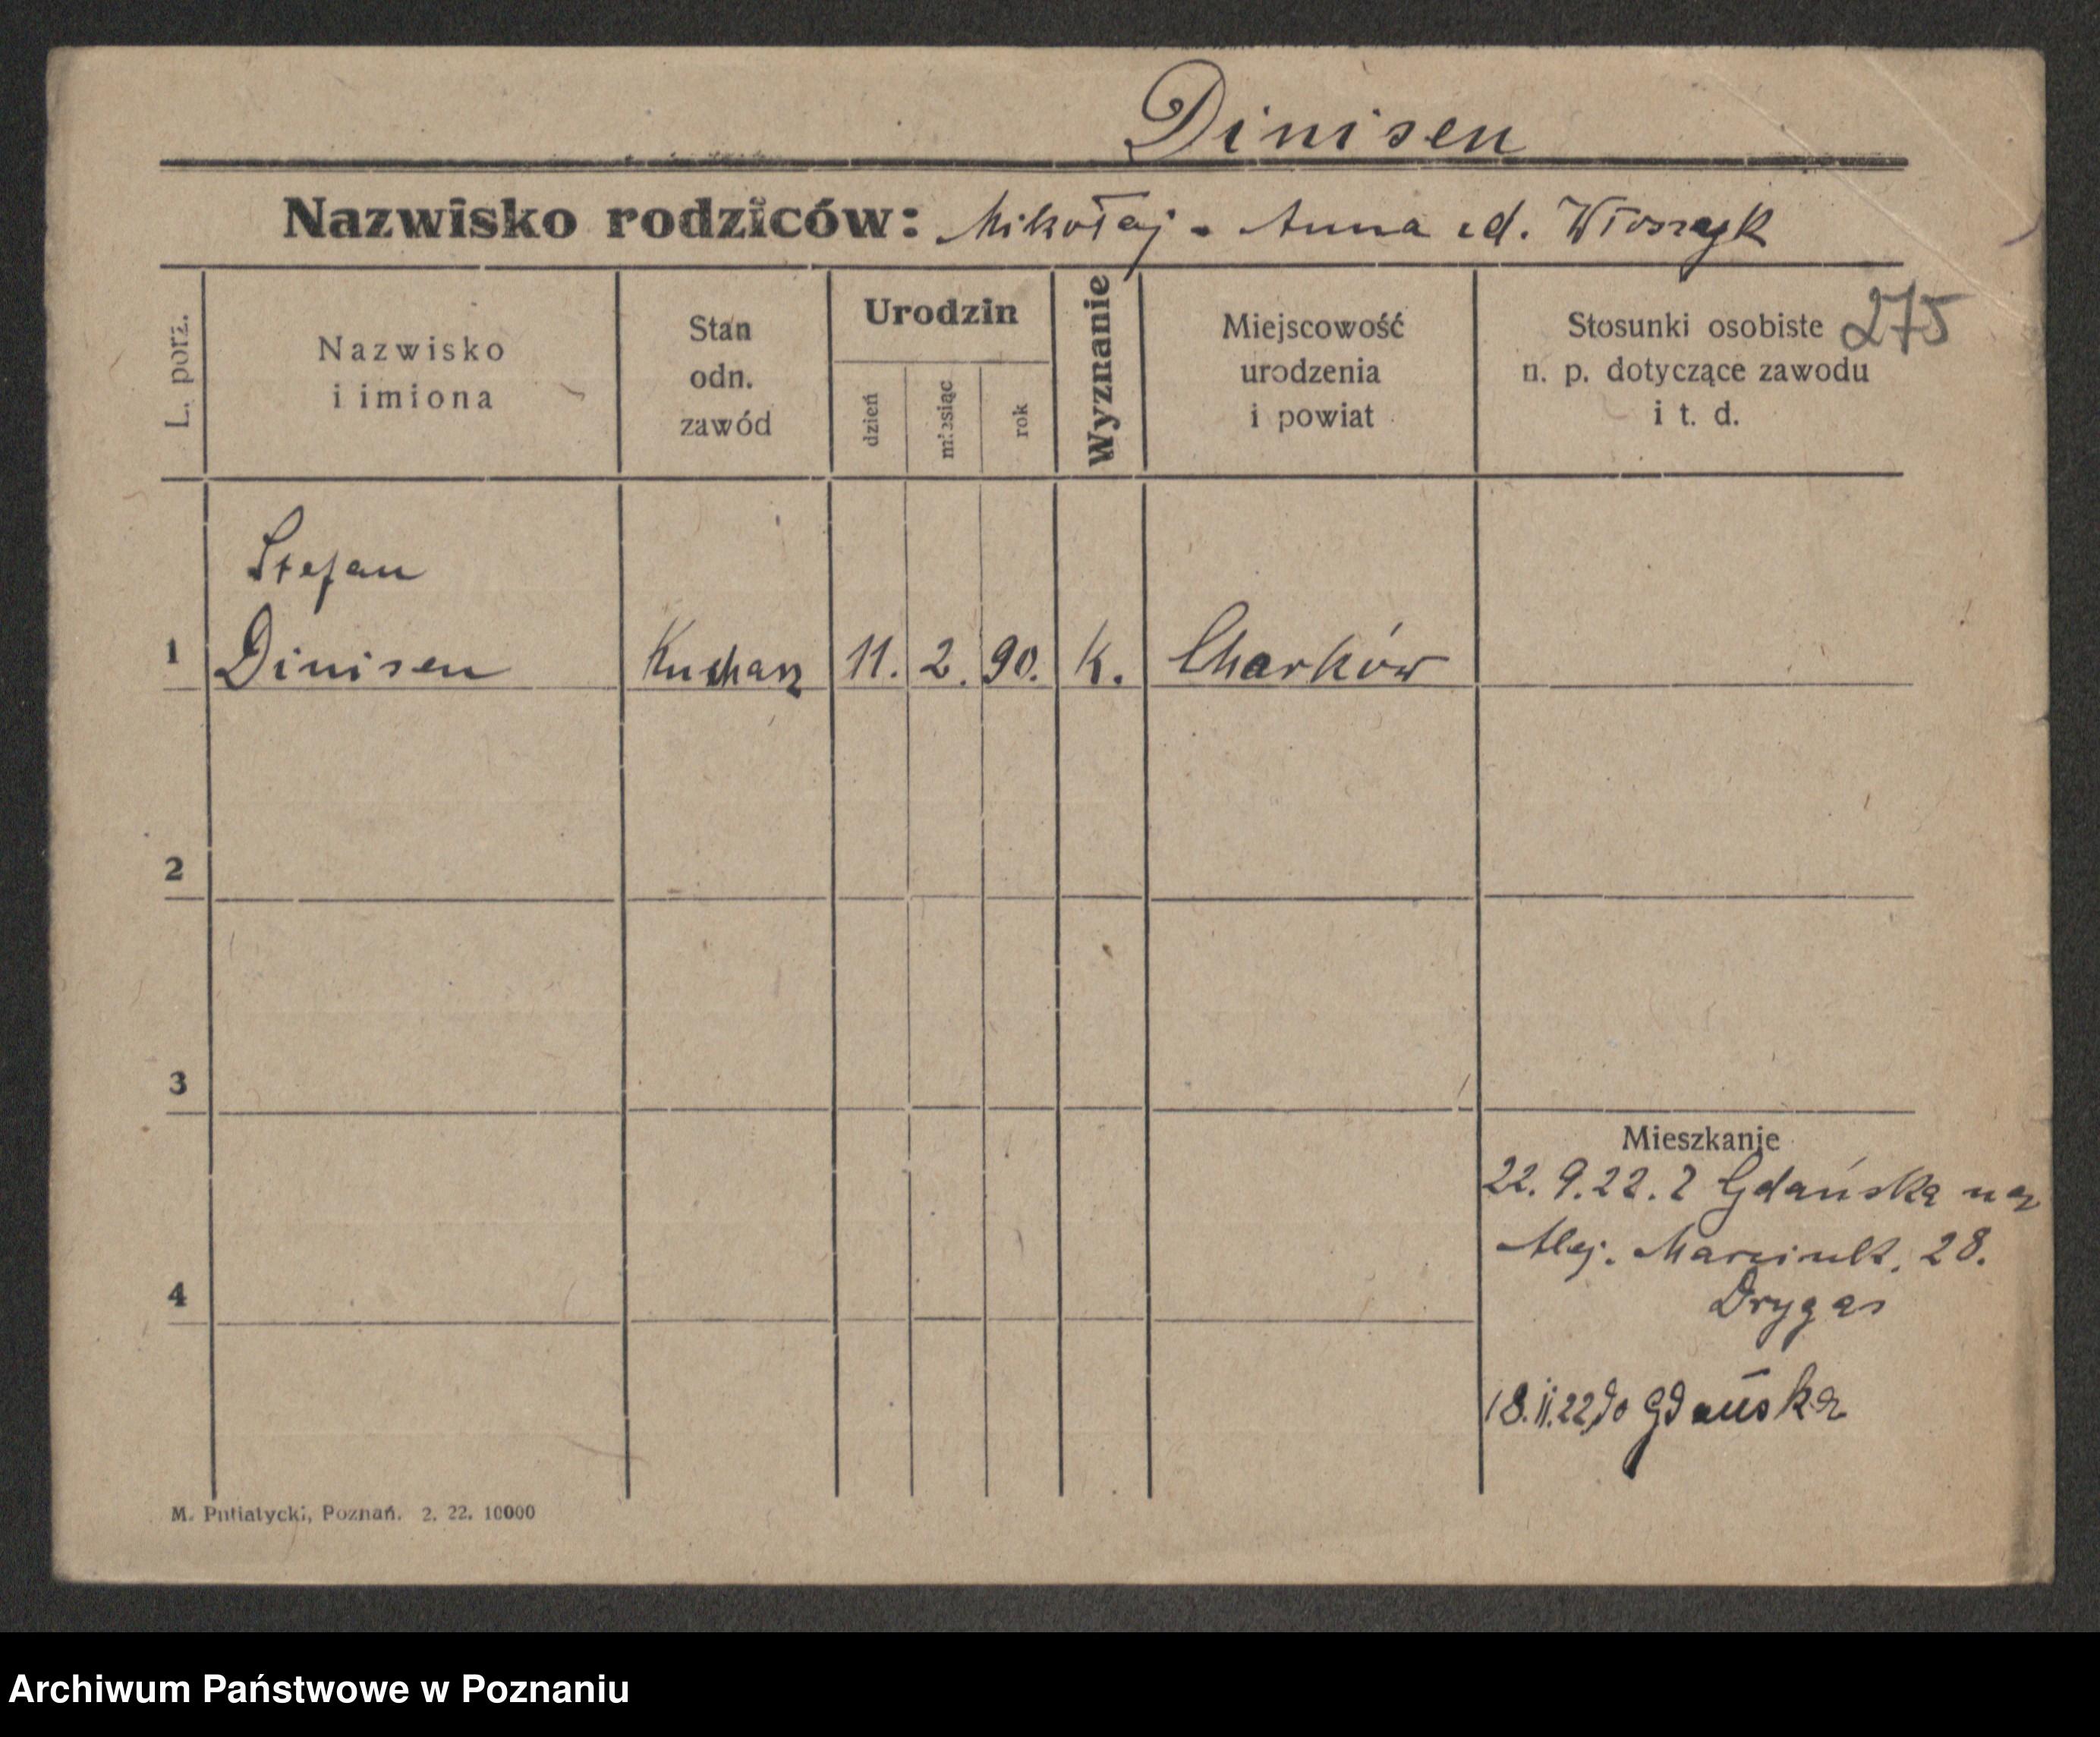 Dinisen
Nazwisko rodziców: Mikołaj - Anna zd. Włoszyk
L. porz.
Nazwisko
i imiona
Stan
odn.
zawód
Urodzin
dzień
miesiąc
rok
Wyznanie
Miejscowość
urodzenia
i powiat
Stosunki osobiste
n. p. dotyczące zawodu
i t. d.
275
Stefan
1 Dinisen Kucharz 11. 2. 90. K. Charków
2
3
4
Mieszkanie
22. 9. 22. z Gdańska na
Alej. Marcink. 28.
Drygas
18.11.22 do Gdańska
M. Putiatycki, Poznań. 2. 22. 10000
Archiwum Państwowe w Poznaniu